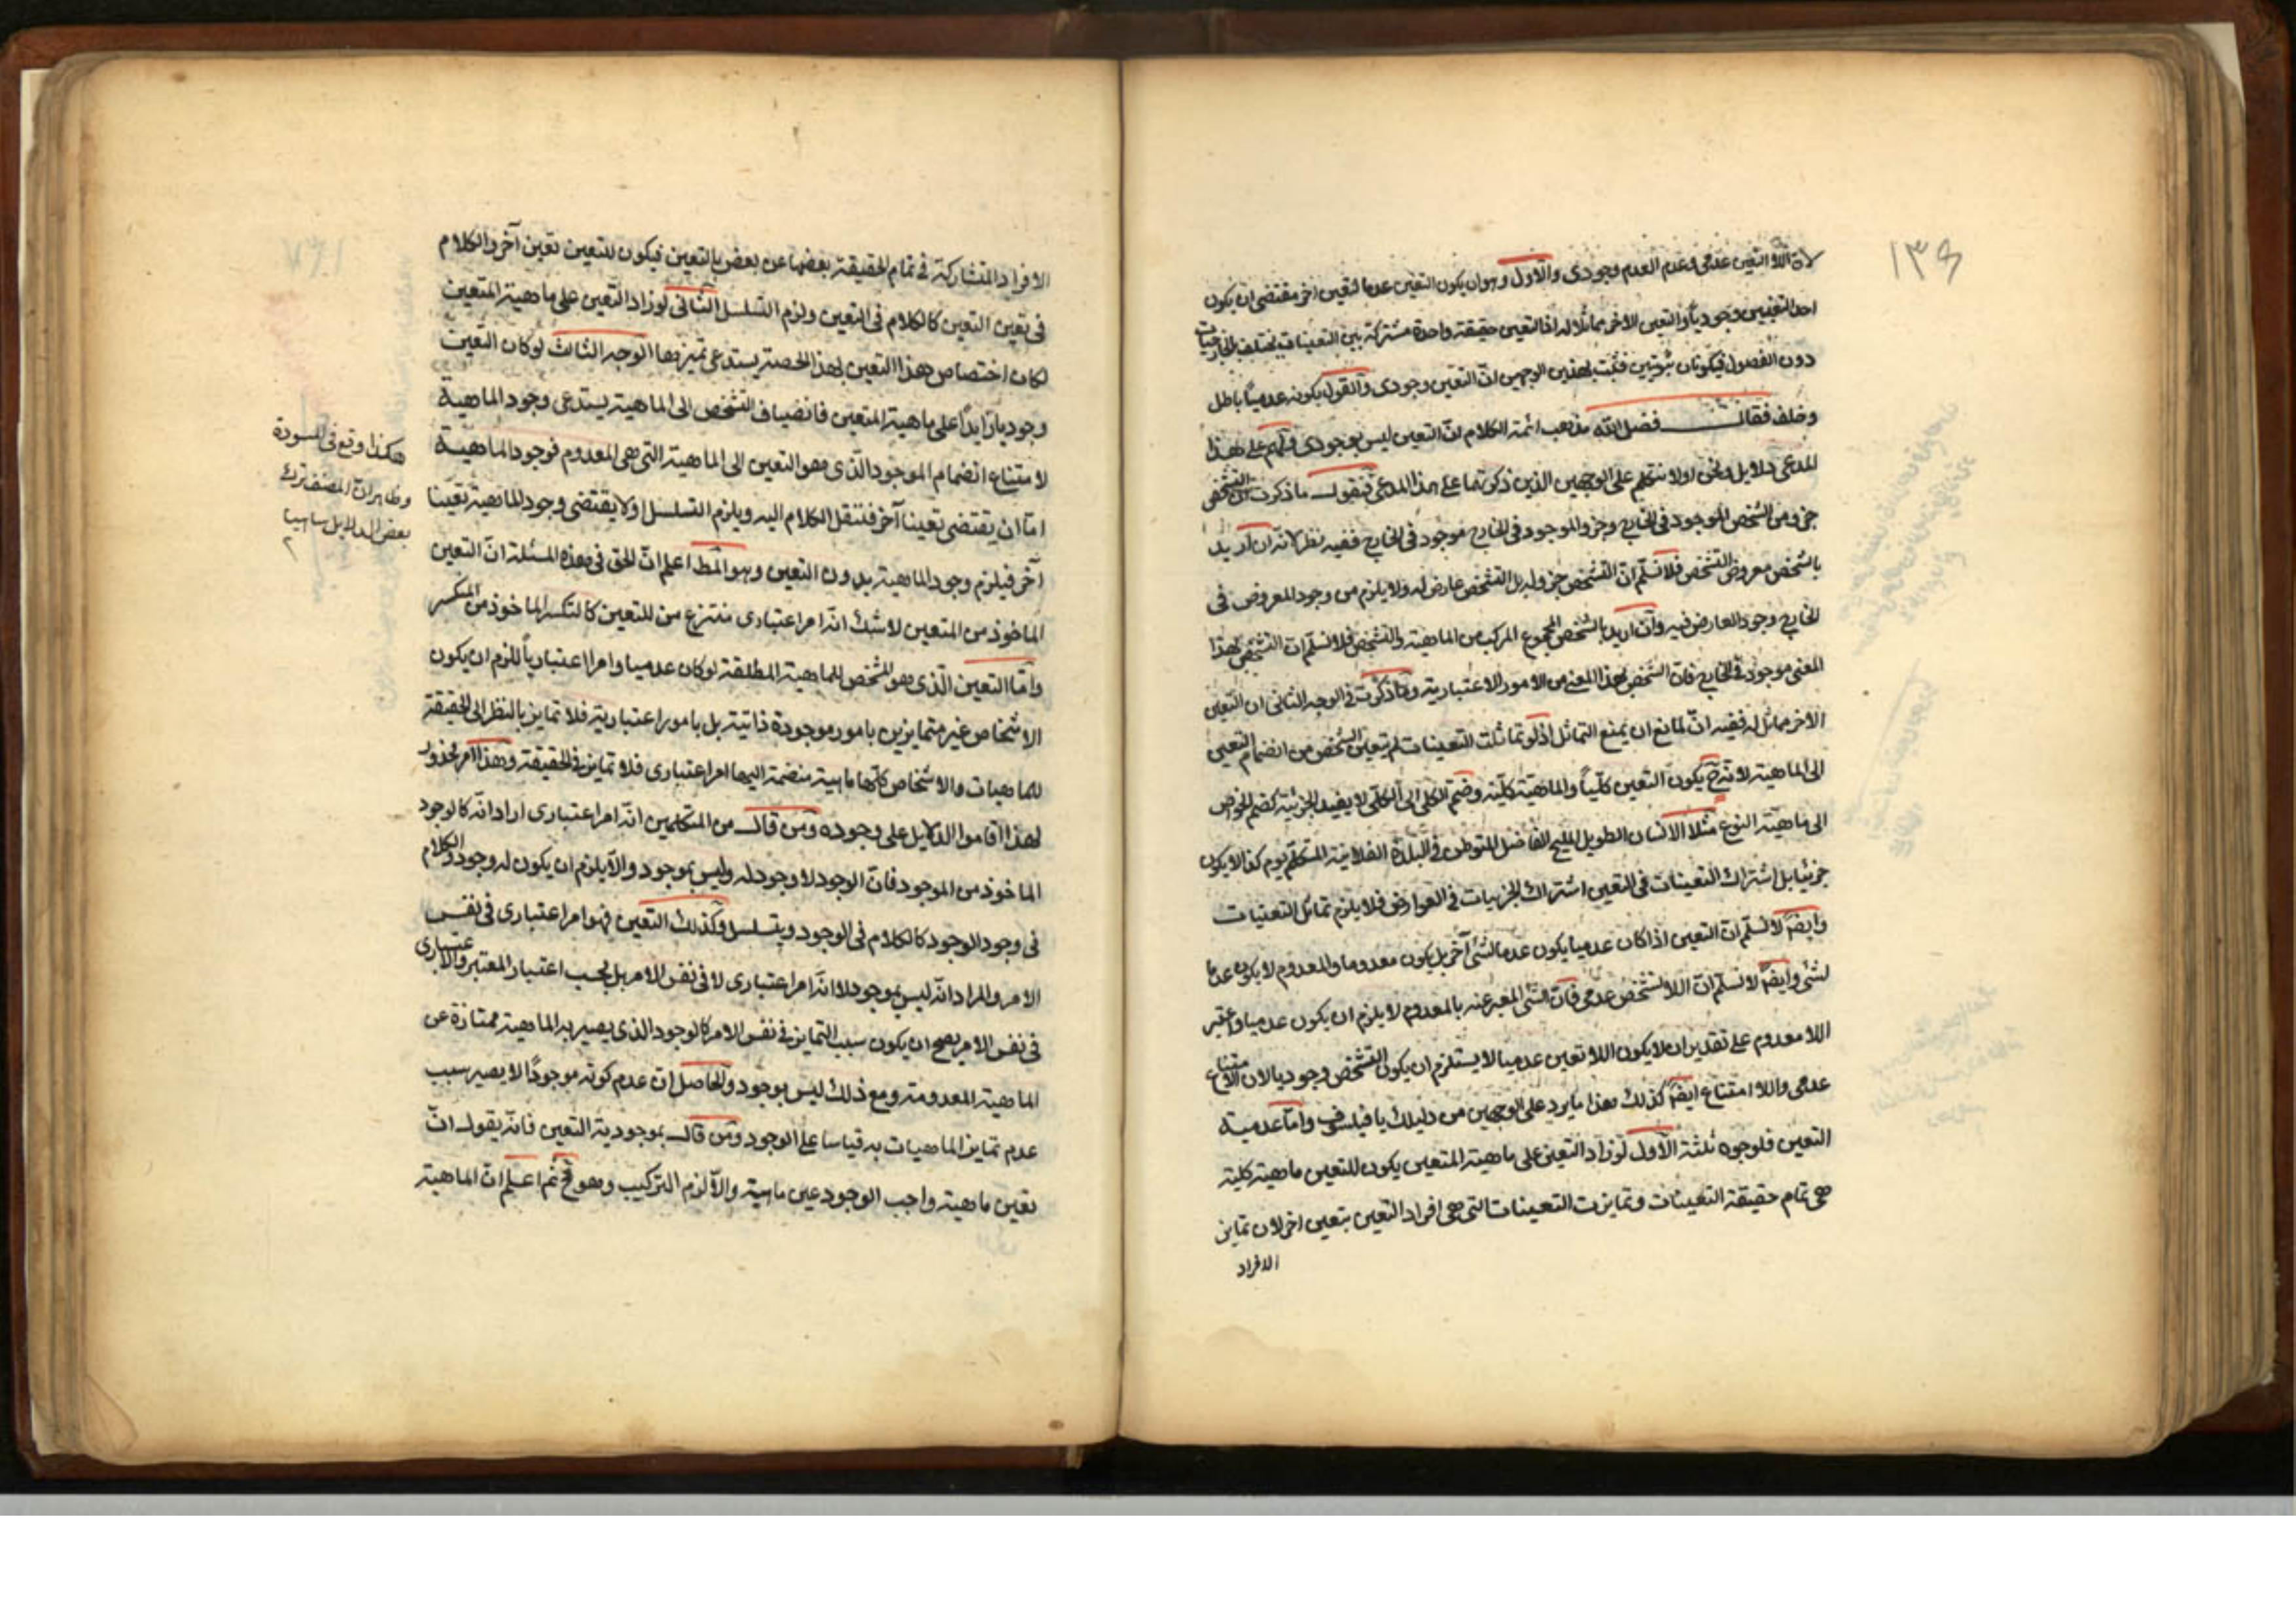 ١٣٩
لان اللا تعين عدمى وعدم العدم وجودى والاول وهو ان يكون التعين عدما لتعين اخر مقتضى ان يكون
احد التعينين وجوديا والتعين الاخر مماثلا له اذ التعين حقيقة واحدة مشتركة بين التعينات يختلف بالخارجيات
دون الفصول فيكونان ثبوتيين فثبت بهذين الوجهين ان التعين وجودى والقول بكونه عدميا باطل
وخلف فقال فضل الله مذهب ائمة الكلام ان التعين ليس بوجودى ولهم على هذا
المدعى دلايل ونحن اولا نتكلم على الوجهين الذين ذكرتما على هذا المدعى فنقول ما ذكرت ان التشخص
جزو من الشخص الموجود فى الخارج وجزو الموجود فى الخارج موجود فى الخارج ففيه نظر لانه ان اريد
بالشخص معروض التشخص فلا نسلم ان التشخص جزو له بل التشخص عارض له ولا يلزم من وجود المعروض فى
الخارج وجود العارض فيه وان اريد بالشخص المجموع المركب من الماهية والتشخص فلا نسلم ان الشخص بهذا
المعنى موجود فى الخارج فان الشخص بهذا المعنى من الامور الاعتبارية وما ذكرت فى الوجه الثانى ان التعين
الاخر مماثل له ففيه ان لمانع ان يمنع التماثل اذ لو تماثلت التعينات لم يتعين الشخص من انضمام التعين
الى الماهية لانه ح يكون التعين كليا والماهية كلية وضم الكلى الى الكلى لا يفيد الجزئية كضم الخواص
الى ماهية النوع مثلا الانسان الطويل المليح الفاضل المتوطن فى البلدة الفلانية المتكلم يوم كذا لا يكون
جزئيا بل اشتراك التعينات فى التعين اشتراك الجزئيات فى العوارض فلا يلزم تماثل التعنيات
وايضا لا نسلم ان التعين اذا كان عدميا يكون عدما لشئ آخر بل يكون معدوما والمعدوم لا يكون عدما
لشئ وايضا لا نسلم ان اللاتشخص عدمى فان الشئ المعبر عنه بالمعدوم لا يلزم ان يكون عدميا واعتبر
اللامعدوم على تقدير ان لا يكون اللاتعين عدميا لا يستلزم ان يكون التشخص وجوديا لان الامتناع
عدمى واللا امتناع ايضا كذلك هذا ما يرد على الوجهين من دليلك يا فيلسوف واما عدمية
التعين فلوجوه ثلثة الاول لو زاد التعين على ماهية المتعين يكون للتعين ماهية كلية
هى تمام حقيقة التعينات وتمايزت التعينات التى هى افراد التعين بتعين اخر لان تمايز
الافراد
الافراد المتشاركة فى تمام الحقيقة بعضها عن بعض بالتعين فيكون للتعين تعين آخر والكلام
فى تعين التعين كالكلام فى التعين ولزم التسلسل الثانى لو زاد التعين على ماهية المتعين
لكان اختصاص هذا التعين بهذا الحصة يستدعى تميزها الوجه الثالث لو كان التعين
وجوديا زايدا على ماهية المتعين فانضياف التشخص الى الماهية يستدعى وجود الماهية
لامتناع انضمام الموجود الذى هو التعين الى الماهية التى هى المعدوم فوجود الماهية
اما ان يقتضى تعينا آخر فننقل الكلام اليه ويلزم التسلسل اولا يقتضى وجود الماهية تعينا
آخر فيلزم وجود الماهية بدون التعين وهو المط اعلم ان الحق فى هذه المسئلة ان التعين
الماخوذ من المتعين لا شك انه امر اعتبارى منتزع من للتعين كالتكسر الماخوذ من المنكسر
واما التعين الذى هو المشخص للماهية المطلقة لو كان عدميا وامرا اعتباريا للزم ان يكون
الاشخاص غير متمايزين بامور موجودة ذاتية بل بامور اعتبارية فلا تمايز بالنظر الى الحقيقة
للماهيات والاشخاص كانها ماهية منضمة اليها امر اعتبارى فلا تمايز فى الحقيقة وهذا امر محذور
لهذا اقاموا الدلايل على وجوده ومن قال من المتكلمين انه امر اعتبارى اراد انه كالوجود
الماخوذ من الموجود فان الوجود لا وجود له وليس بموجود والا يلزم ان يكون له وجود والكلام
فى وجود الوجود كالكلام فى الوجود ويتسلسل وكذلك التعين فهو امر اعتبارى فى نفس
الامر والمراد انه ليس بموجود لا انه امر اعتبارى لا فى نفس الامر بل بحسب اعتبار المعتبر والاعتبارى
فى نفس الامر يصح ان يكون سبب التمايز فى نفس الامر كالوجود الذى يصير به الماهية ممتازة عن
الماهية المعدومة ومع ذلك ليس بوجود والحاصل ان عدم كونه موجودا لا يصير سبب
عدم تمايز الماهيات به قياسا على الوجود ومن قال بموجودية التعين فانه يقول ان
تعين ماهية واجب الوجود عين ماهية والا لزم التركيب وهو مح ثم اعلم ان الماهية
هكذا وقع فى المسودة
وظاهر ان المصنف ترك
بعض الدلايل ساهيا